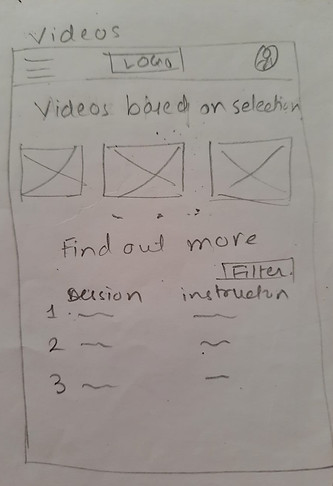 Videos
LOGO
Videos based on selection
Find out more
Filter
instruction
1
2
3